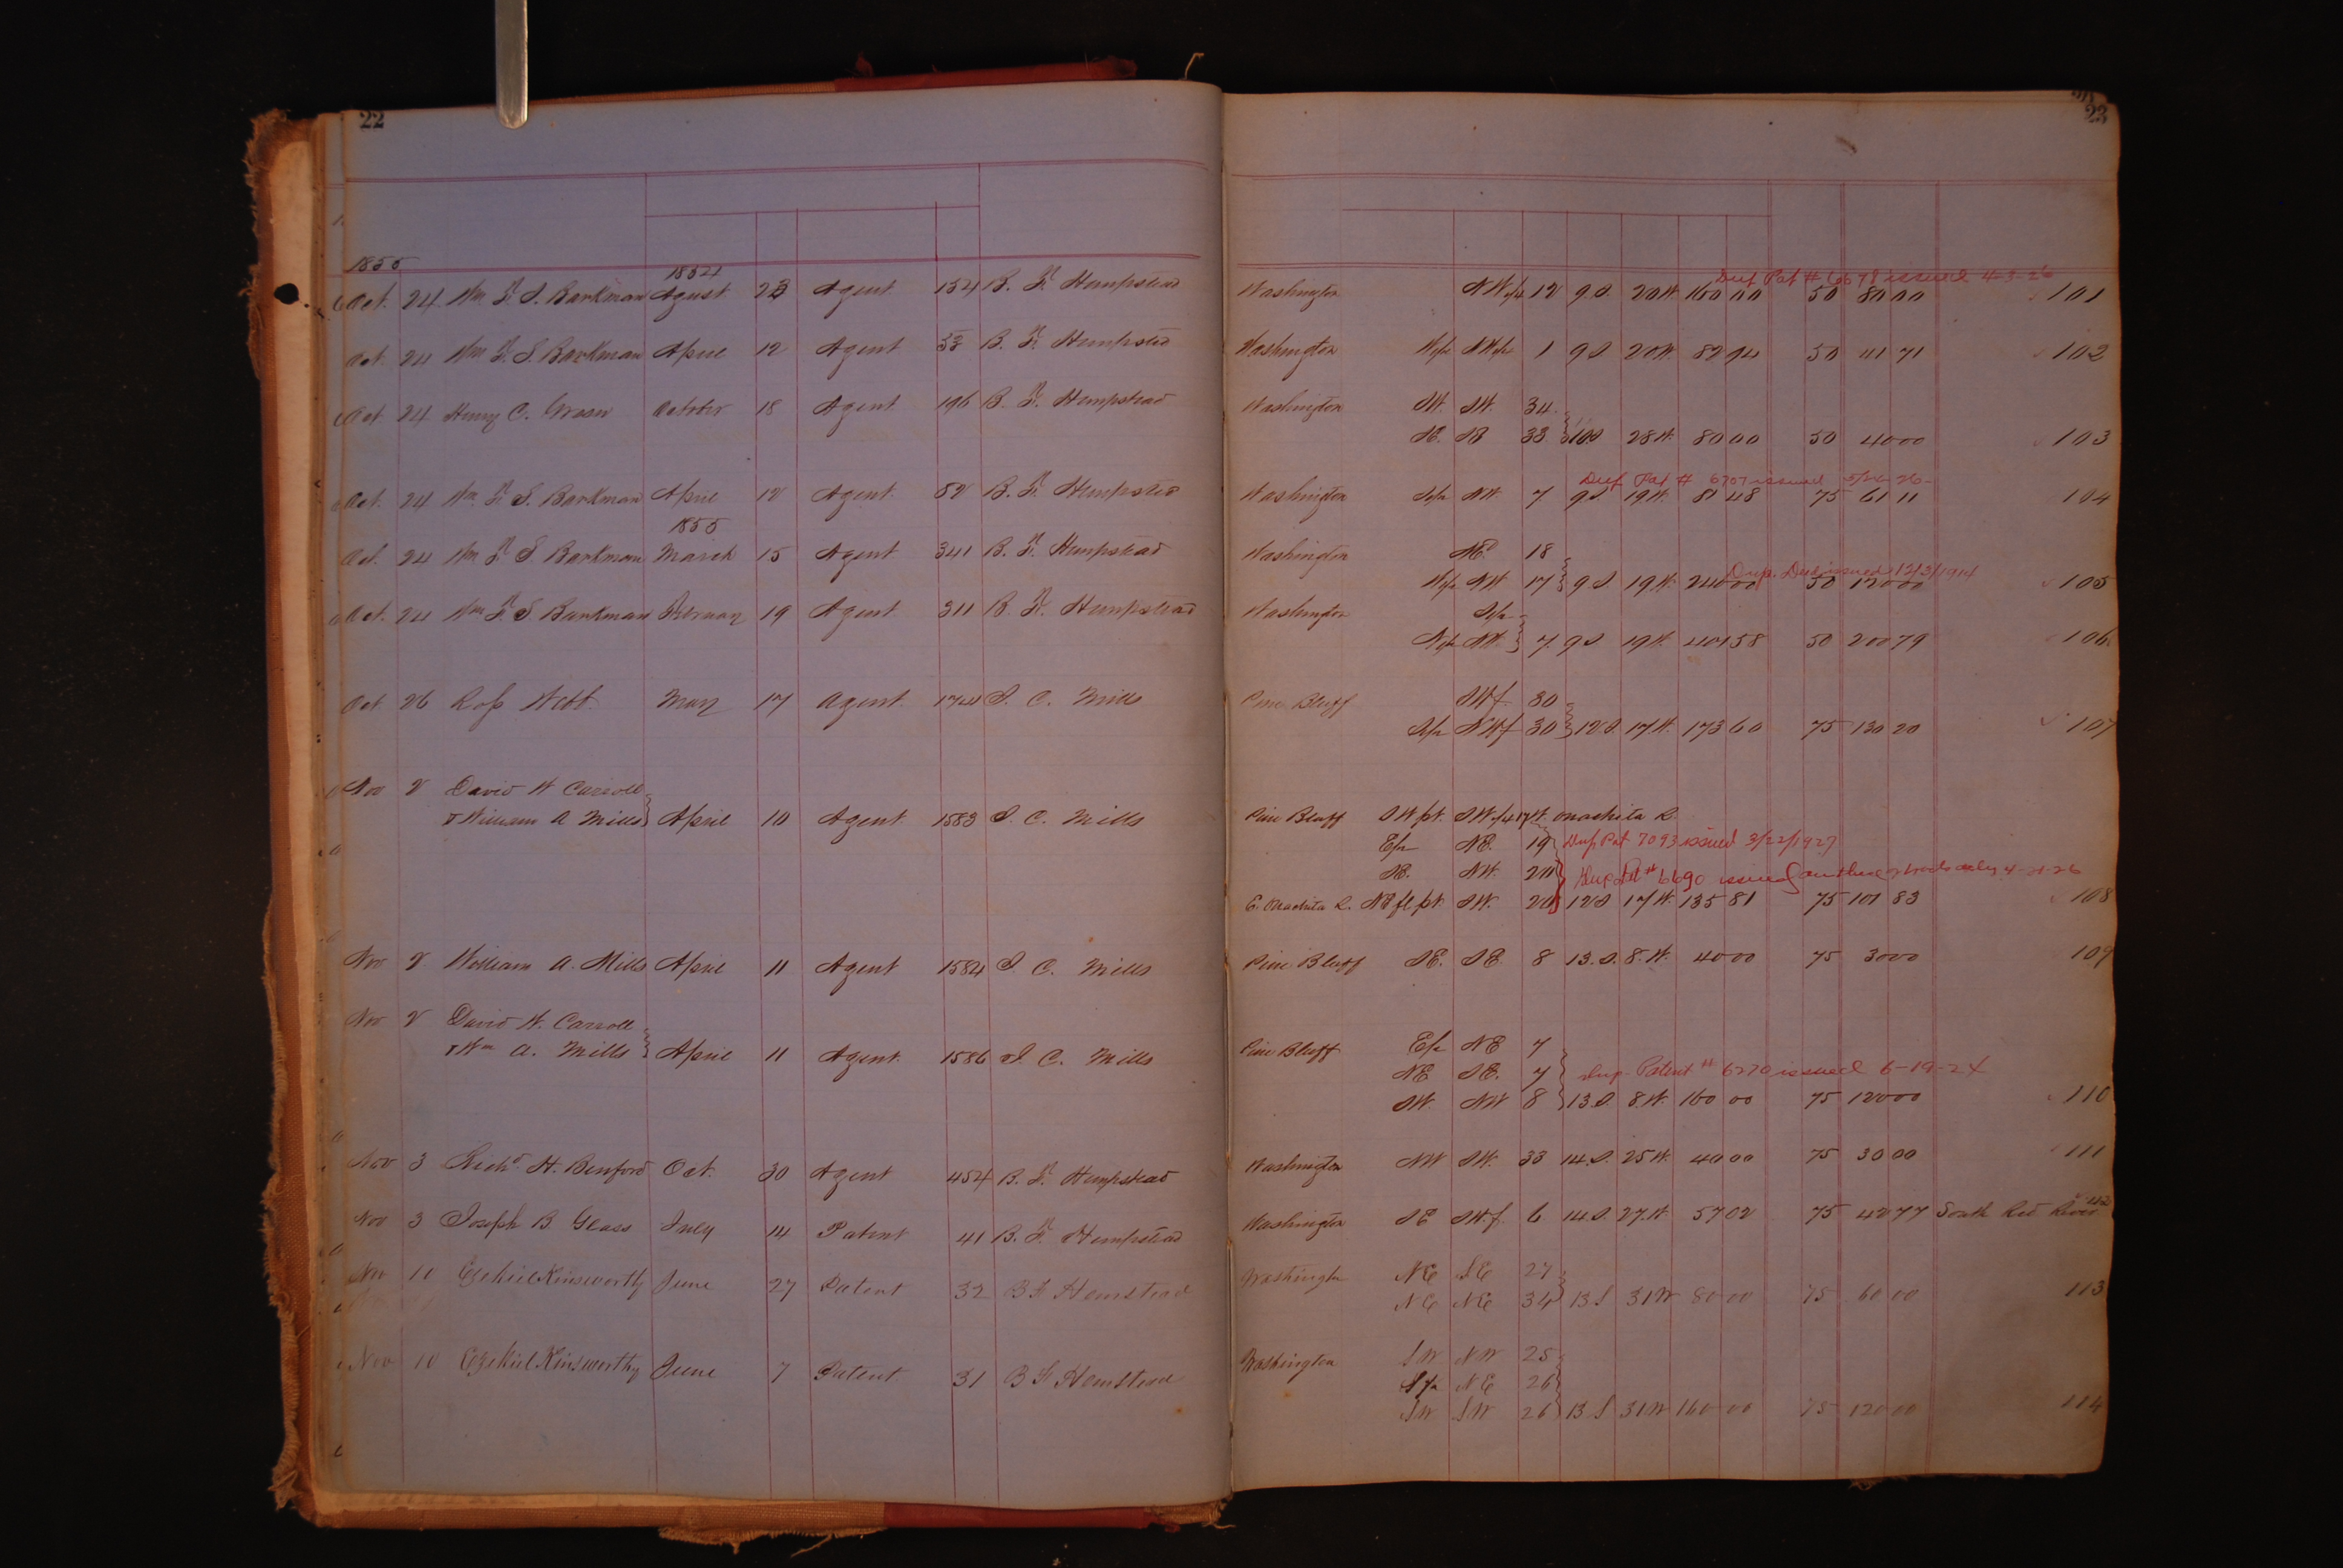 22
23
1855
1854
Oct. 24 Wm F. S. Barkman August 23 Agent 154 B. F. Hempstead Washington NW 1/4 12 9 S. 20 W. 160 00 50 80 00 101
Dup Pat # 6678 issued 4-3-26
Oct. 24 Wm F. S. Barkman April 12 Agent 53 B. F. Hempstead Washington W 1/2 NW 1/4 1 9 S 20 W. 50 41 71 102
Oct. 24 Henry C. October 18 Agent 196 B. F. Hempstead Washington SW. SW. 34
SE. SE 33 28 W. 80 00 50 40 00 103
Dup Pat # 6707 issued 5/26-26-
Oct. 24 Wm F. S. Barkman April 12 Agent 52 B. F. Hempstead Washington S 1/2 NW. 7 9 S 19 W. 81 48 75 61 11 104
1855
Oct. 24 Wm F. S Barkman March 15 Agent 341 B. F. Hempstead Washington NE. 18
Dup. Deed issued 12/3/1914
W 1/2 NW 17 9 S 19 W. 240 00 50 120 00 105
Oct. 24 Wm F. S Barkman February 19 Agent 311 B. F. Hempstead Washington S 1/2
N 1/2 NW. 7. 9 S 19 W. 401 58 50 200 79 106
Oct. 26 Ross Webb May 17 Agent. 174 S. C. Mills Pine Bluff SW f 30
S 1/2 NW f 30 12 S. 17 W. 173 60 75 130 20 107
Nov 2 David W Carroll
& William A Mills April 10 Agent 1583 S. C. Mills Pine Bluff SW pt. SW 1/4 17 W. Ouachita R.
E 1/2 NE. 19 Dup Pat 7093 issued 3/22/1927
SE. NW. 20 Dup Pat # 6690 issued 4-21-26
E. Ouachita R. NE fl pt. SW. 20 12 S 17 W. 135 81 75 101 83 108
Nov 2 William A. Mills April 11 Agent 1584 S. C. Mills Pine Bluff SE. SE. 8 13. S. 8. W. 40 00 75 30 00 109
Nov 2 David W. Carroll
& Wm A. Mills April 11 Agent. 1586 S. C. Mills Pine Bluff E 1/2 NE 7
NE SE. 7 Dup. Patent # 6270 issued 6-19-24
SW. NW 8 13 S. 8 W. 160 00 75 120 00 110
Nov 3 Richd H. Benford Oct. 30 Agent 454 B. F. Hempstead Washington NW SW. 33 14. S. 25 W. 40 00 75 30 00 111
Nov 3 Joseph B. Glass July 14 Patent 41 B. F. Hempstead Washington SE SW. f. 6 14 S. 27. W. 57 02 75 42 77 South Red River 112
Nov 10 Ezekiel Kinsworthy June 27 Patent 32 B F Hemstead Washington NE SE 27
NE NE 34 13 S 31 W 80 00 75 60 00 113
Nov 10 Ezekiel Kinsworthy June 7 Patent 31 B F Hemstead Washington SW NW 25
S 1/2 NE 26
SW SW 26 13 S 31 W 160 00 75 120 00 114